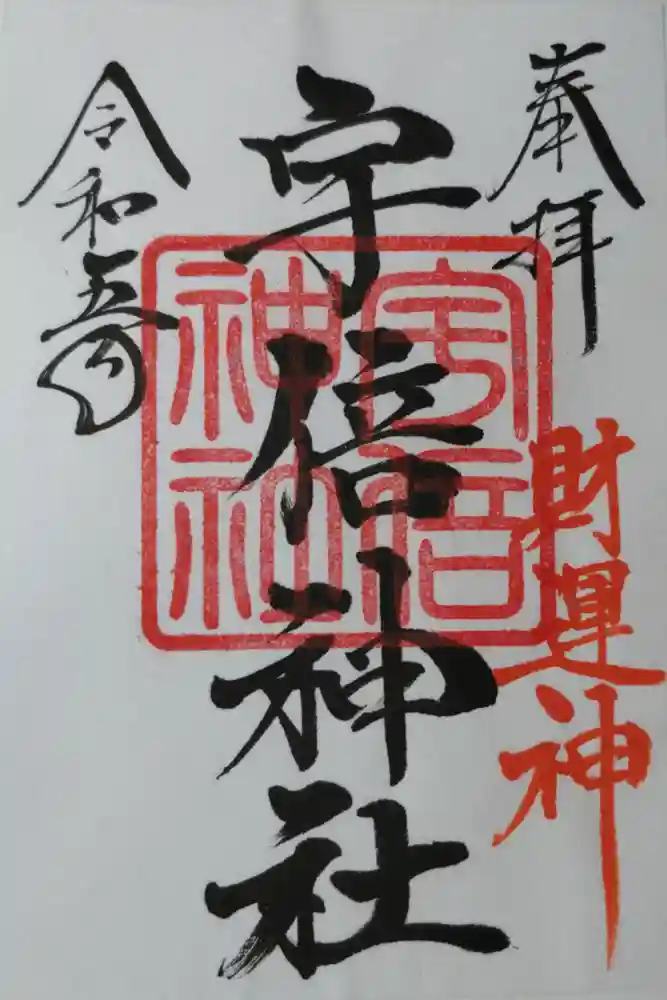 奉拝
財運神
宇倍神社
宇倍
神社
令和五年